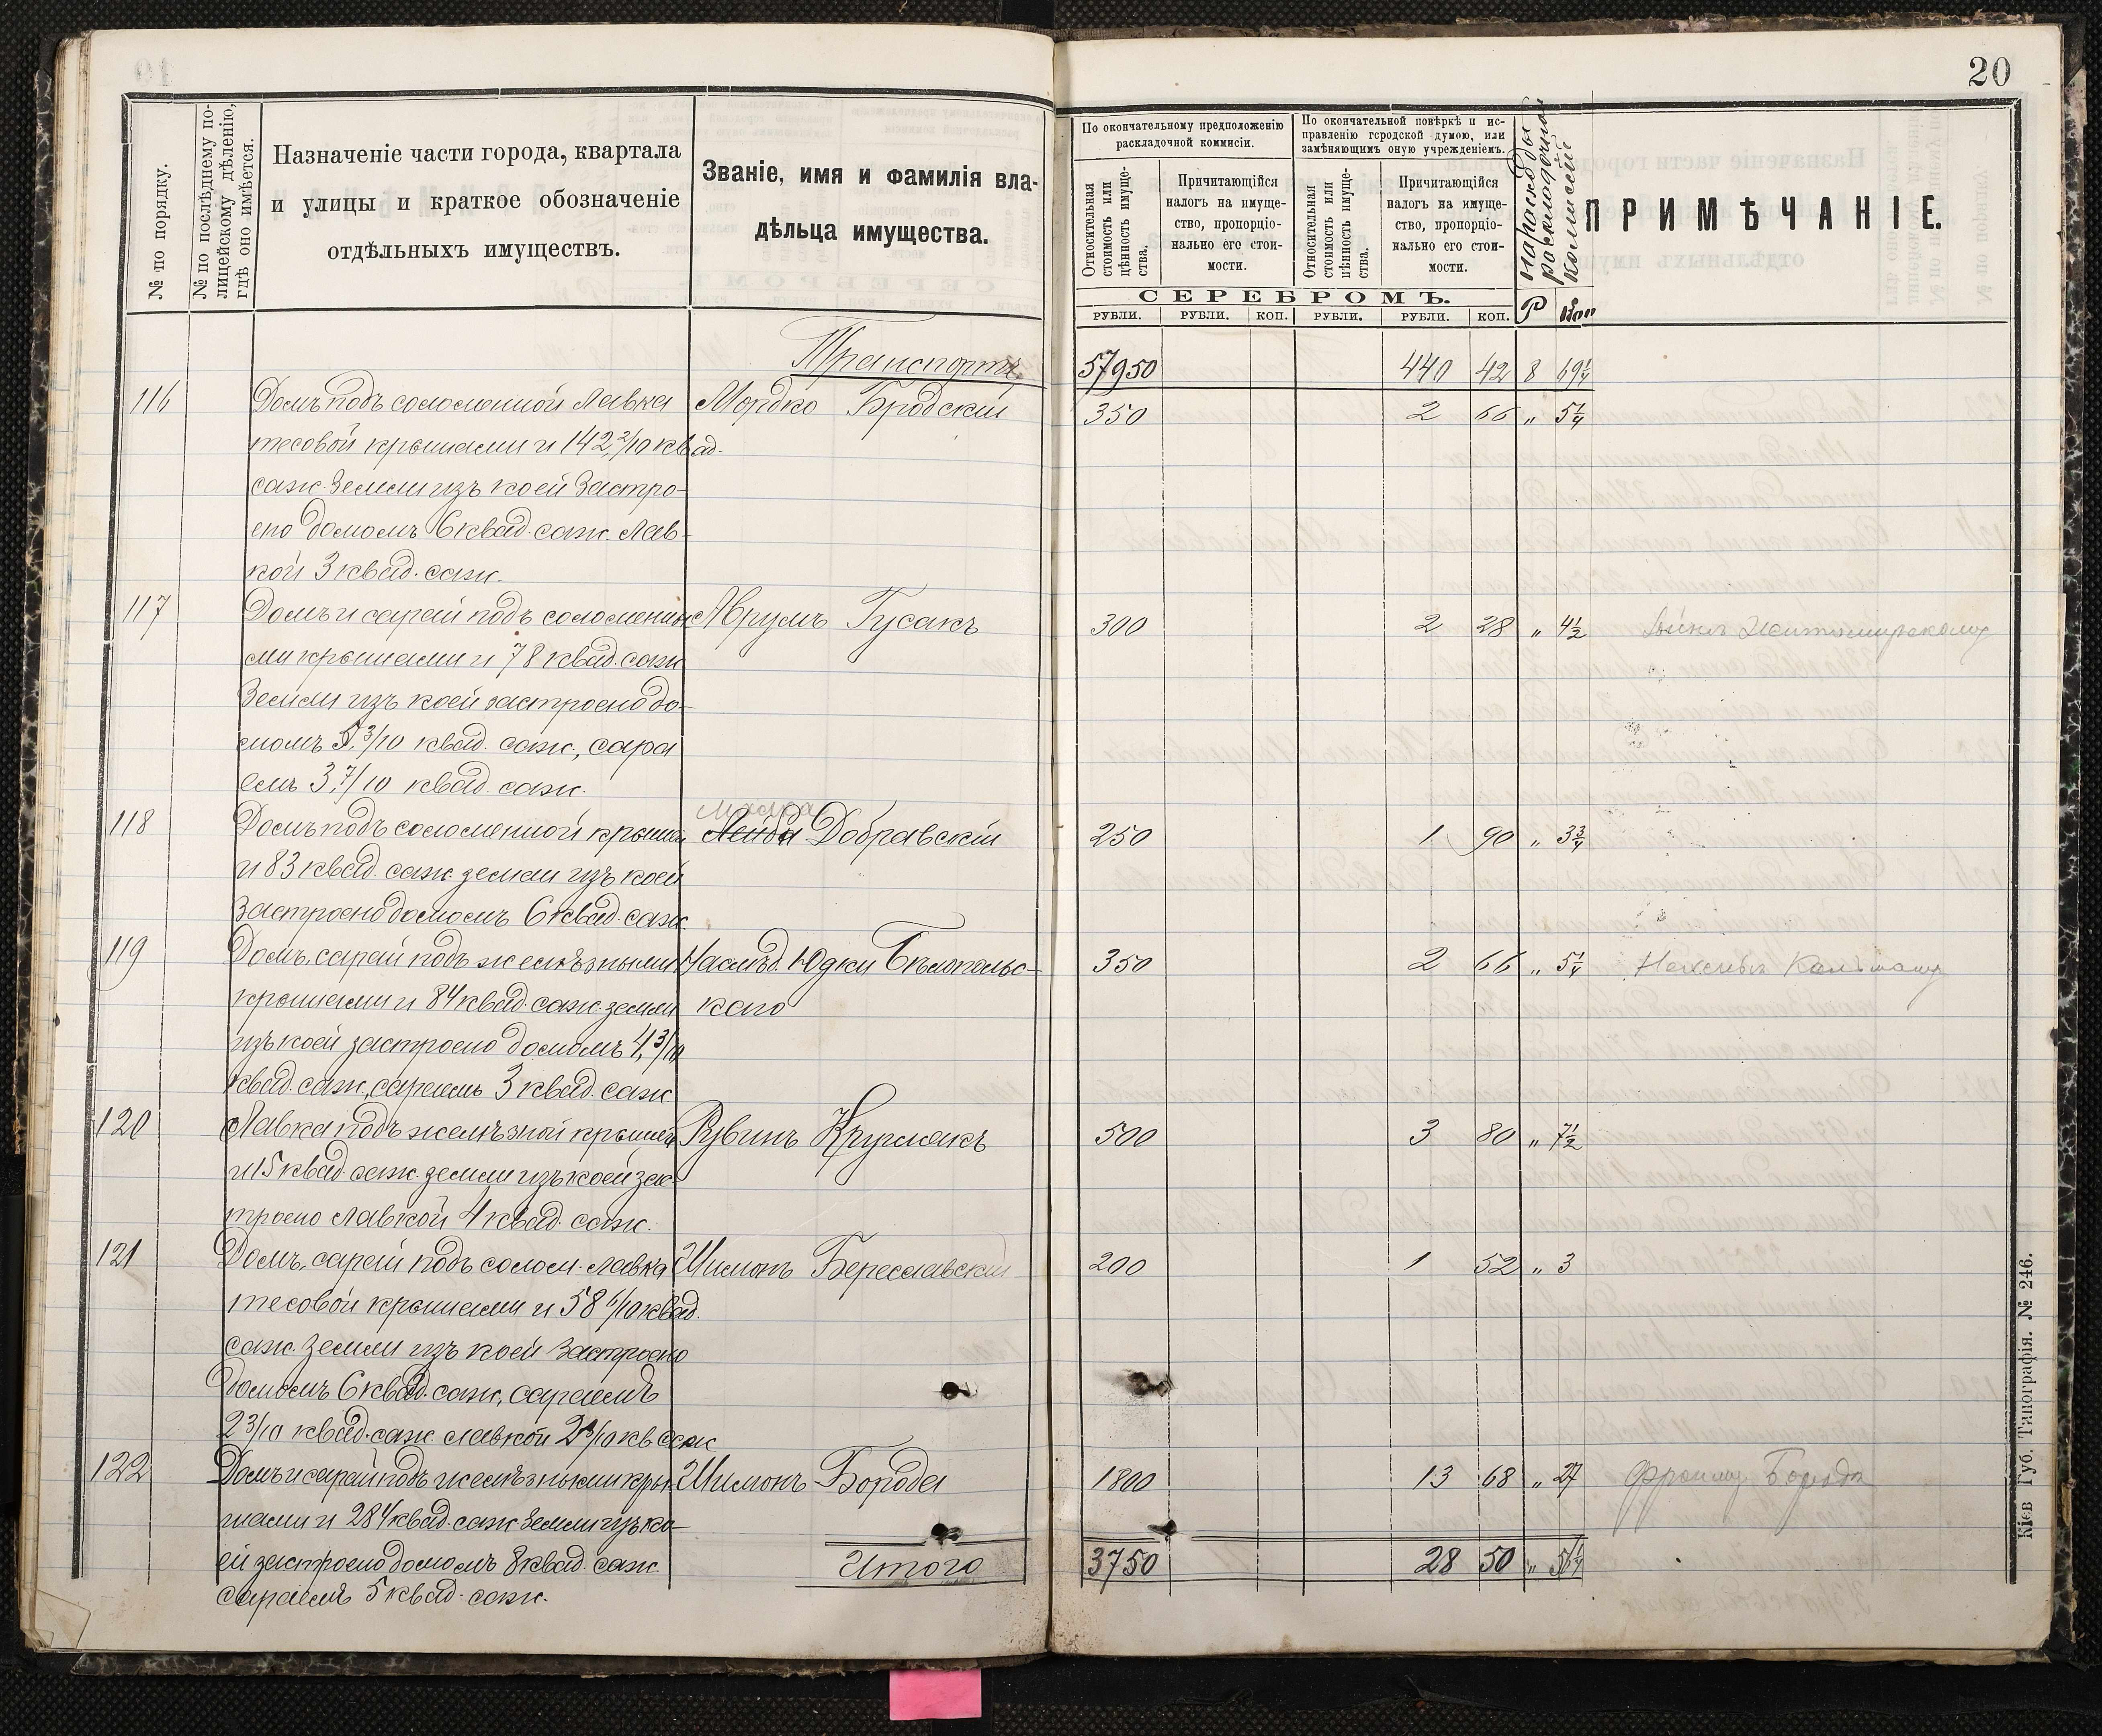 20
№ по порядку.
№ по послѣднему по-
лицейскому дѣленію,
гдѣ оно имѣется.
Назначеніе части города, квартала
и улицы и краткое обозначеніе
отдѣльныхъ имуществъ.
Званіе, имя и фамилія вла-
дѣльца имущества.
По окончательному предположенію
раскладочной коммисіи.
По окончательной повѣркѣ и ис-
правленію городской думою, или
замѣняющимъ оную учрежденіемъ.
Относительная
стоимость или
цѣнность имуще-
ства.
Причитающійся
налогъ на имуще-
ство, пропорціо-
нально его стои-
мости.
Относительная
стоимость или
цѣнность имуще-
ства.
Причитающійся
налогъ на имуще-
ство, пропорціо-
нально его стои-
мости.
на расходы
раскладочной
коммисіи
ПРИМѢЧАНІЕ.
СЕРЕБРОМЪ.
РУБЛИ. РУБЛИ. КОП. РУБЛИ. РУБЛИ. КОП. Р Коп
Транспортъ 57950 440 42 8 69¼
116 Домъ подъ соломенной Лавка Мордко Бродскій 350 2 66 „ 5¼
тесовой крышами и 142,2/10 квад.
саж. Земли изъ коей Застро-
ено домомъ 6 квад. саж. Лав-
кой 3 квад. саж.
117 Домъ и сарай подъ соломены Аврумъ Гусакъ 300 2 28 „ 4½ Житомирскому
ми крышами и 78 квад. саж
Земли изъ коей застроено до-
момъ 5,3/10 квад. саж., сара
емъ 3,7/10 квад. саж.
118 Домъ подъ соломенной крыши Лейба Добравскій 250 1 90 „ 3¾
и 83 квад. саж. земли изъ коей
Застроено домомъ 6 квад. саж.
119 Домъ, сарай подъ желѣзными Наслѣд. Юдки Бѣлопольс- 350 2 66 „ 5¼
крышами и 84 квад. саж. земли каго
изъ коей застроено домомъ 4,3/10
квад. саж., сараемъ 3 квад. саж
120 Лавка подъ желѣзной крышей Рувинъ Кругмакъ 500 3 80 „ 7½
и 15 квад. саж. земли изъ коей зас
троено лавкой 4 квад. саж.
121 Домъ, сарай подъ солом. лавка Шимонъ Береславскій 200 1 52 „ 3
тесовой крышами и 58 6/10 квад.
саж. Земли изъ коей Застроено
домомъ 6 квад. саж., сараемъ
2 3/10 квад. саж. лавкой 2 3/10 кв саж
122 Домъ и сарай подъ желѣзными кры- Шимонъ Борода 1800 13 68 „ 27 Фроиму Борода
шами и 284 квад. саж Земли изъ ко-
ей застроено домомъ 8 квад. саж
сараемъ 5 квад. саж.
Итого 3750 28 50 „ 56¼
Кіев Губ. Типографія. № 246.